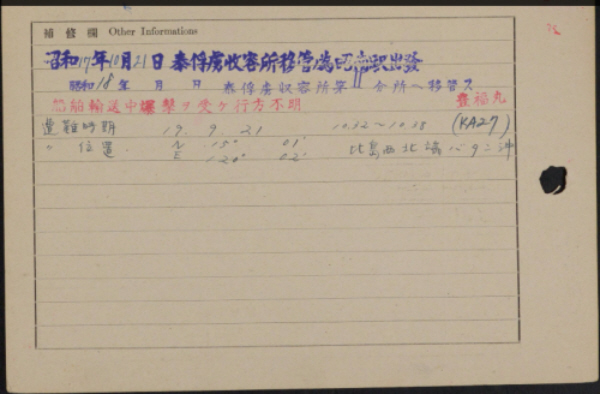 補修欄 Other Informations
昭和17年10月21日 泰俘虜收容所移管ノ為昭南出發
昭和18年 月 日 泰俘虜収容所第11分所ヘ移管ス
船舶輸送中爆撃ヲ受ケ行方不明 豊福丸
遭難時期 19. 9. 21 10.32〜10.38 (KA27)
〃 位置. N 15° 01'
E 120° 02' 比島西北端バタン沖